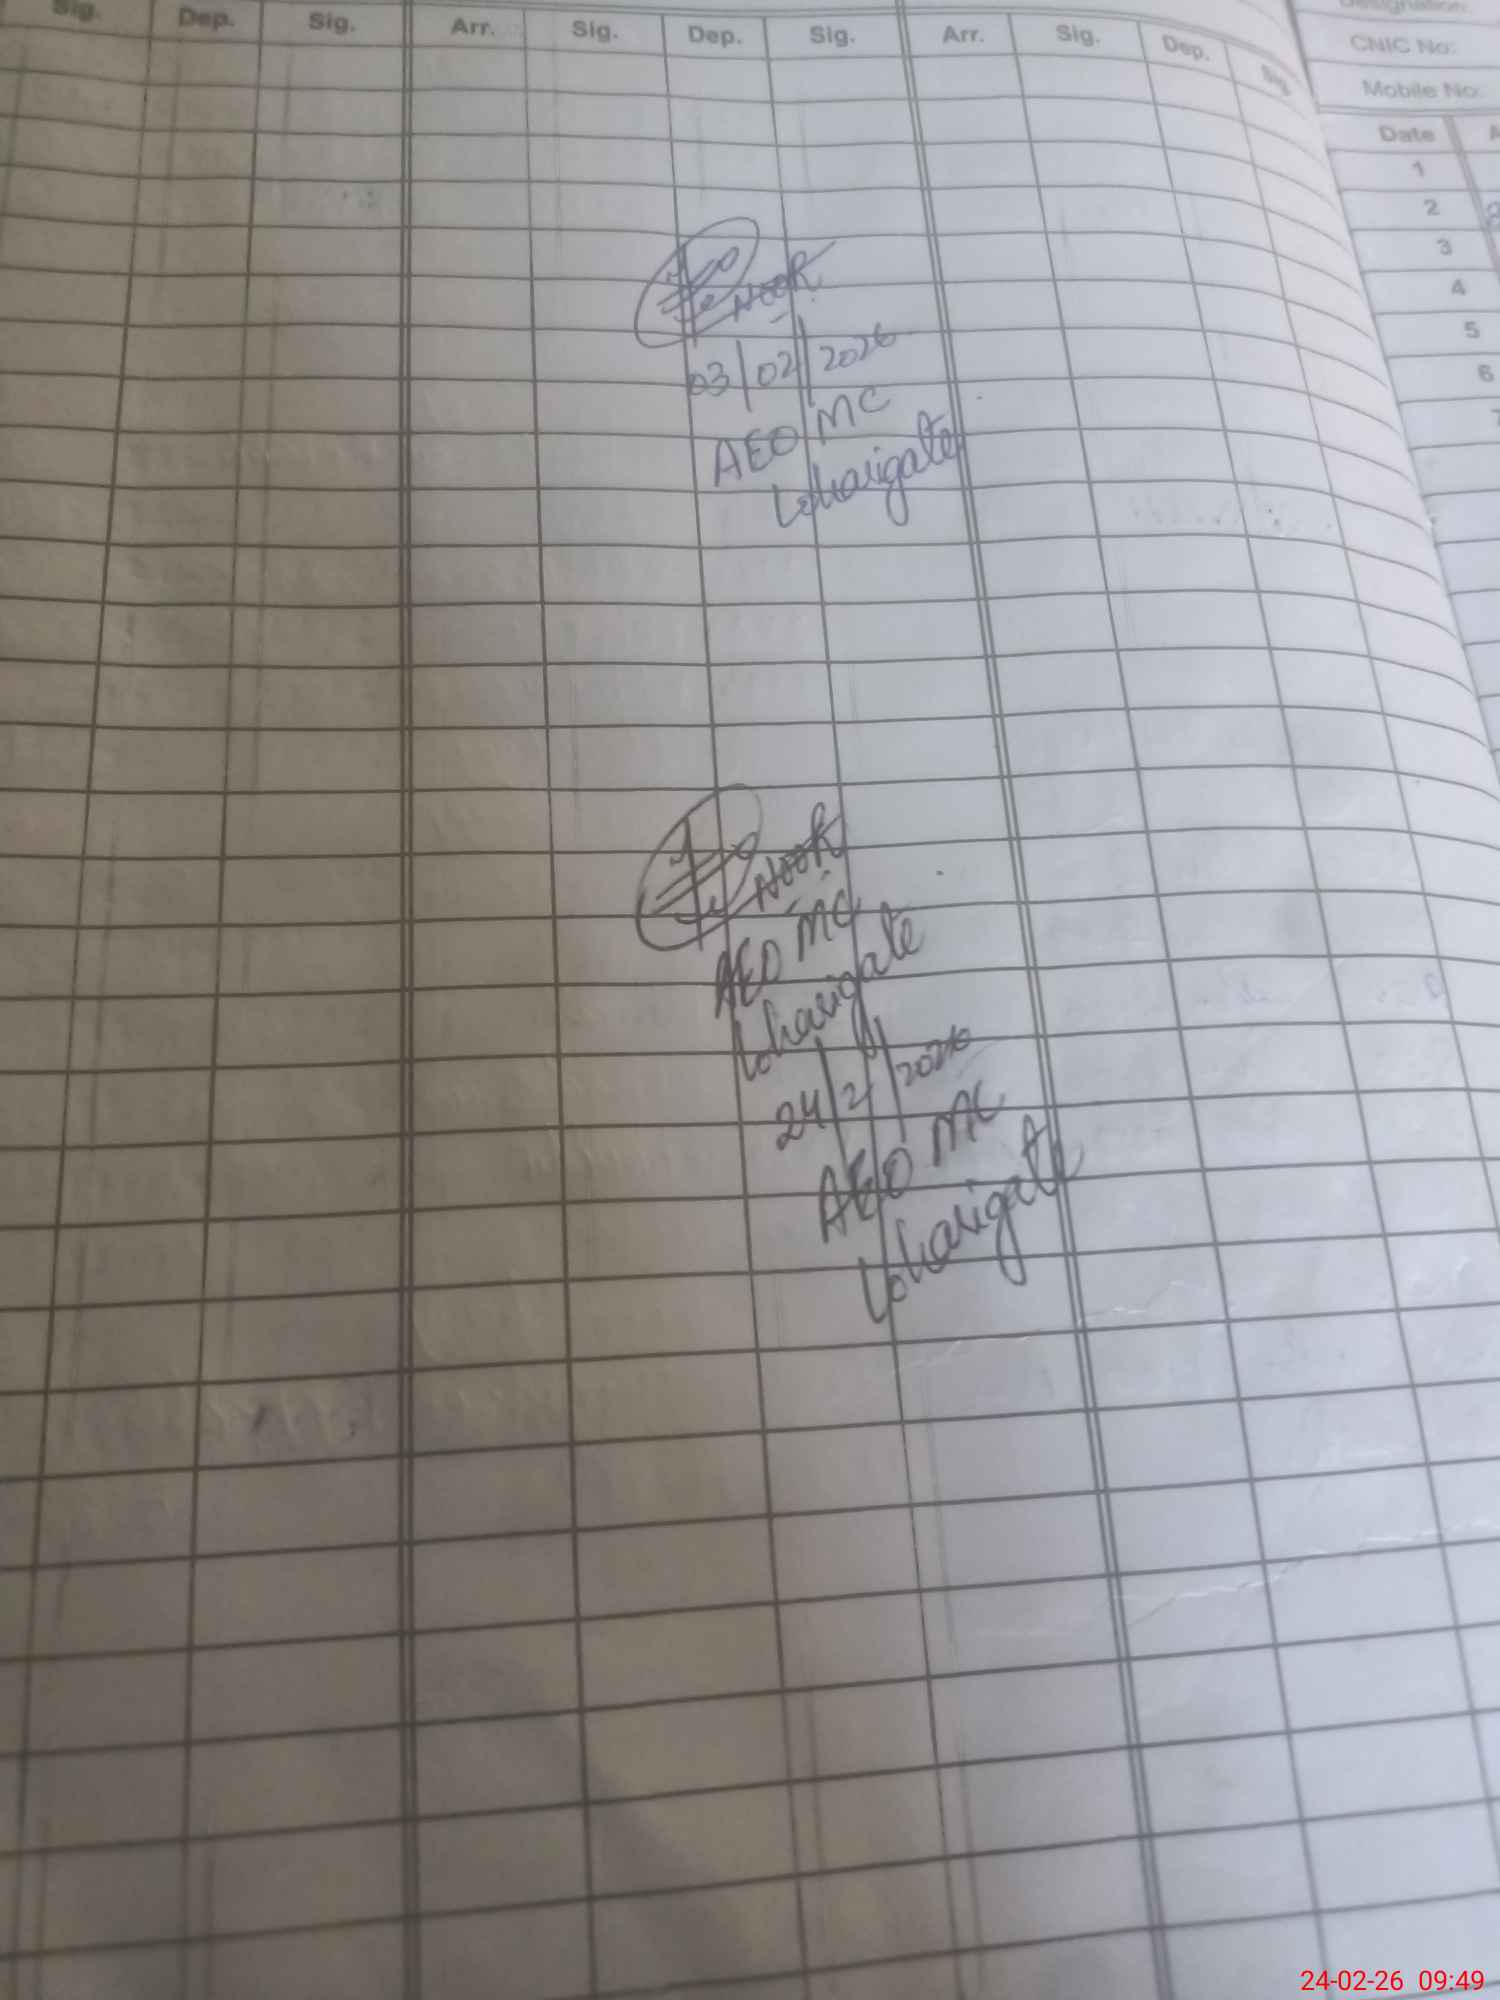 Sig. Dep. Sig. Arr. Sig. Dep. Sig. Arr. Sig. Dep. Sig.
Designation:
CNIC No:
Mobile No:
Date A
1
2
3
4
5
6
7
Noor
03/02/2026
AEO MC
Loharigate
Noor
AEO MC
Loharigate
24/2/2026
AEO MC
Loharigate
24-02-26 09:49